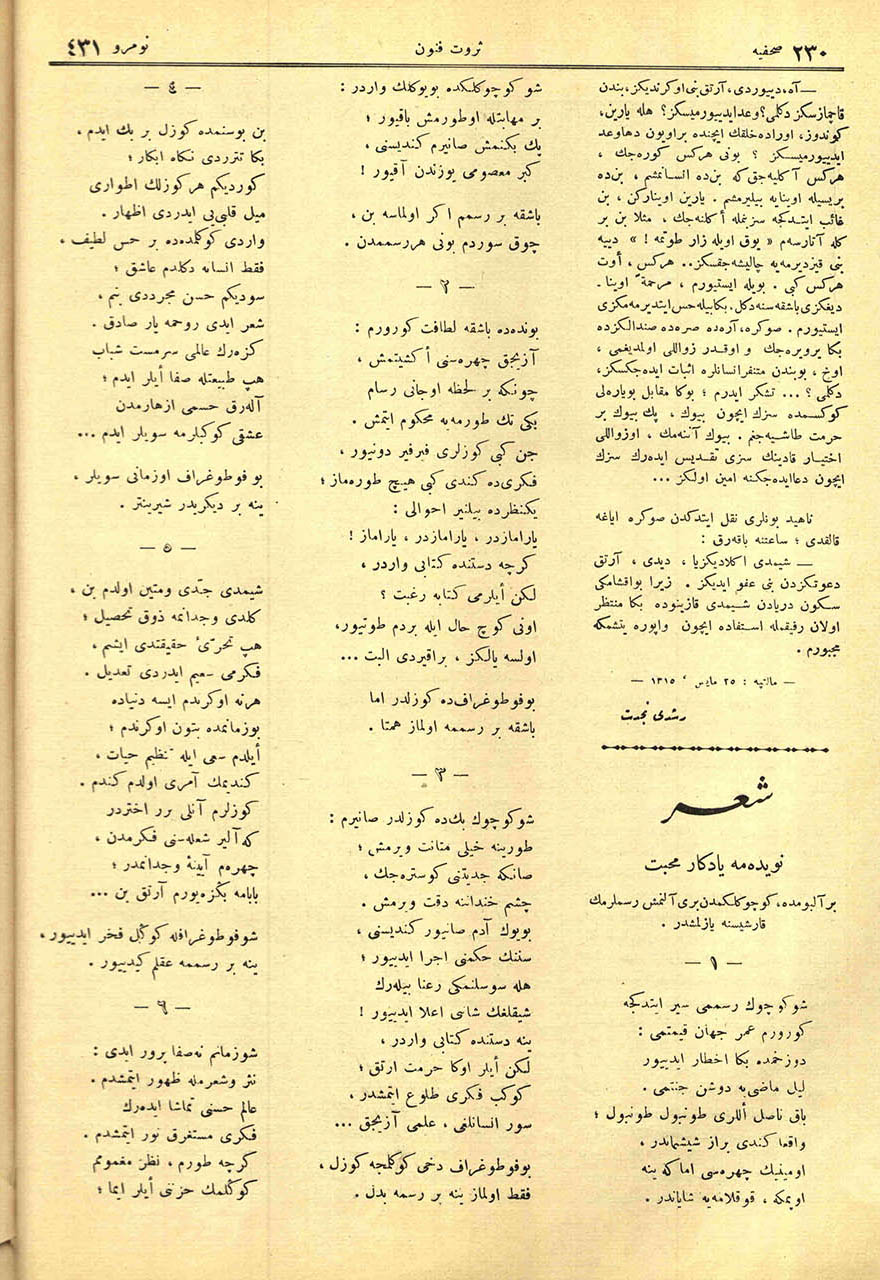 صحفیه ٢٣٠
ثروت فنون
نومرو ٤٣١
— آه، دییوردی، آرتق بنی اوکرندیکز، بندن
قاچمازسکز دکلمی؟ وعد ایدییورمیسکز؟ هله یارین،
کوندوز، اوراده خلقك ایچنده براویون دهاوعد
ایدییورمیسکز ؟ بونی هرکس کوره‌جك ،
هرکس آکلیه‌جق‌که بن‌ده انسانمشم ، بن‌ده
بریسیله اوینایه بیلیرمشم . یارین اوینارکن ، بن
غائب ایتدکجه سزبنمله أکلنه‌جك ، مثلا بن بر
کله آتارسه‌م « یوق اویله زار طوتمه ! » دییه
بنی قیزدیرمه‌یه چالیشه‌جقسکز.. هرکس ، أوت
هرکس کبی . بویله ایستیورم ، مرحمةً اوینا۔
دیغکزی باشقه سنه دکل. بکابیله حس ایتدیرمه‌مکزی
ایستیورم . صوکره، آره‌ده صره‌ده صندالکزده
بکا یرویره‌جك و اوقدر زواللی اولمدیغمی ،
اوخ ، بوبندن متنفر انسانلره اثبات ایده‌جکسکز،
دکلمی ؟ ... تشکر ایدرم ؛ بوکا مقابل بویاره‌لی
کوکسمده سزك ایچون بیوك ، پك بیوك بر
حرمت طاشیه‌جنم . بیوك آننه‌مك ، اوزواللی
اختیار قادینك سزی تقدیس ایده‌رك سزك
ایچون دعاایده‌جکنه امین اولکز ...
ناهید بونلری نقل ایتدکدن صوکره ایاغه
قالقدی ؛ ساعتنه باقه‌رق :
— شیمدی اکلادیکزیا ، دیدی ، آرتق
دعوتکزدن بنی عفو ایدیکز . زیرا بواقشامکی
سکون دریادن شیمدی قازینوده بکا منتظر
اولان رفیقمله استفاده ایچون واپوره یتشمکه
مجبورم .
— مالتپه : ٢٥ مایس ، ١٣١٥ —
رشدی نجدت
شعر
نویده‌مه یادکار محبت
برآلبومده، کوچوکلکمدن‌بری آلنمش رسملرمك
قارشیسنه یازلمشدر .
— ١ —
شوکوچوك رسممی سیر ایتدکجه
کورورم عمر جهان قیمتمی :
دوزخمده بکا اخطار ایدییور
لیل ماضی‌یه دوشن جنتمی .
باق ناصل أللری طونبول طونبول ؛
واقعا کندی براز شیشماندر ،
اومینیك چهره‌سی اما که ینه
اوپمکه ، قوقلامه‌یه شایاندر .
شو کوچوکلکده بویوکلك واردر :
بر مهابتله اوطورمش باقیور ؛
پك بکنمش صانیرم کندیسنی ،
کبر معصومی یوزندن آقیور !
باشقه بر رسمم اکر اولماسه بن ،
چوق سوردم بونی هررسممدن .
— ٢ —
بونده‌ده باشقه لطافت کورورم :
آزیجق چهره‌سنی أکشیتمش ،
چونکه بر لحظه اوجانی رسام
بکی تك طورمه‌یه محکوم ایتمش .
جن کبی کوزلری فیرفیر دونیور ،
فکری‌ده کندی کبی هیچ طوره‌ماز ؛
یکنظرده بیلنیر احوالی :
یارامازدر ، یارامازدر ، یاراماز !
کرچه دستنده کتابی واردر ،
لکن أیلرمی کتابه رغبت ؟
اونی کوچ حال ایله بردم طوتیور،
اولسه یالکز ، براقیردی البت ...
بوفوطوغراف‌ده کوزلدر اما
باشقه بر رسممه اولماز همتا .
— ٣ —
شوکوچوك بك‌ده کوزلدر صانیرم :
طورینه خیلی متانت ویرمش ؛
صانکه جدیتنی کوستره‌جك ،
چشم خنداننه دقت ویرمش .
بویوك آدم صانیور کندیسنی ،
سننك حکمنی اجرا ایدییور ؛
هله سوسلنمکی رعنا بیله‌رك
شیقلغك شاننی اعلا ایدییور !
ینه دستنده کتابی واردر ،
لکن أیلر اوکا حرمت ارتق ؛
کوکب فکری طلوع ایتمشدر ،
سور انسانلغی ، علمی آزیجق ...
بوفوطوغراف دخی کوکلمجه کوزل ،
فقط اولماز ینه بر رسمه بدل .
— ٤ —
بن بوسنمده کوزل بر بك ایدم ،
بکا تتردی نکاه ابکار ؛
کوردیکم هرکوزلك اطواری
میل قلبی‌یی ایدردی اظهار .
واردی کوکلمده‌ده بر حس لطیف ،
فقط انسانه دکلدم عاشق ؛
سودیکم حسن مجرددی بنم ،
شعر ایدی روحمه یار صادق .
کزه‌رك عالمی سرمست شباب
هپ طبیعتله صفا أیلر ایدم ؛
آله‌رق حسمی ازهارمدن
عشقی کوکبلرمه سویلر ایدم ...
بو فوطوغراف اوزمانی سویلر ،
ینه بر دیکریدر شیرینتر .
— ٥ —
شیمدی جدّی ومتین اولدم بن ،
کلدی وجدانمه ذوق تحصیل ؛
هپ تحرّیٔ حقیقتدی ایشم ،
فکرمی سعیم ایدردی تعدیل .
هرنه اوکرندم ایسه دنیاده
بوزمانمده بتون اوکرندم ؛
أیلدم سعی ایله تنظیم حیات ،
کندیمك آمری اولدم کندم .
کوزلرم آنلی برر اختردر
که آلیر شعله‌سنی فکرمدن ،
چهره‌م آیینهٔ وجدانمدر ؛
بابامه بکزه‌یورم آرتق بن ...
شوفوطوغرافله کوکل فخر ایدییور ،
ینه بر رسممه عقلم کیدییور .
— ٦ —
شوزمانم نه‌صفا پرور ایدی :
نثر وشعرمله ظهور ایتمشدم .
عالم حسنی تماشا ایده‌رك
فکری مستغرق نور ایتمشدم .
کرچه طورم ، نظرِ مغمومم
کوکلمك حزننی أیلر ایما ؛